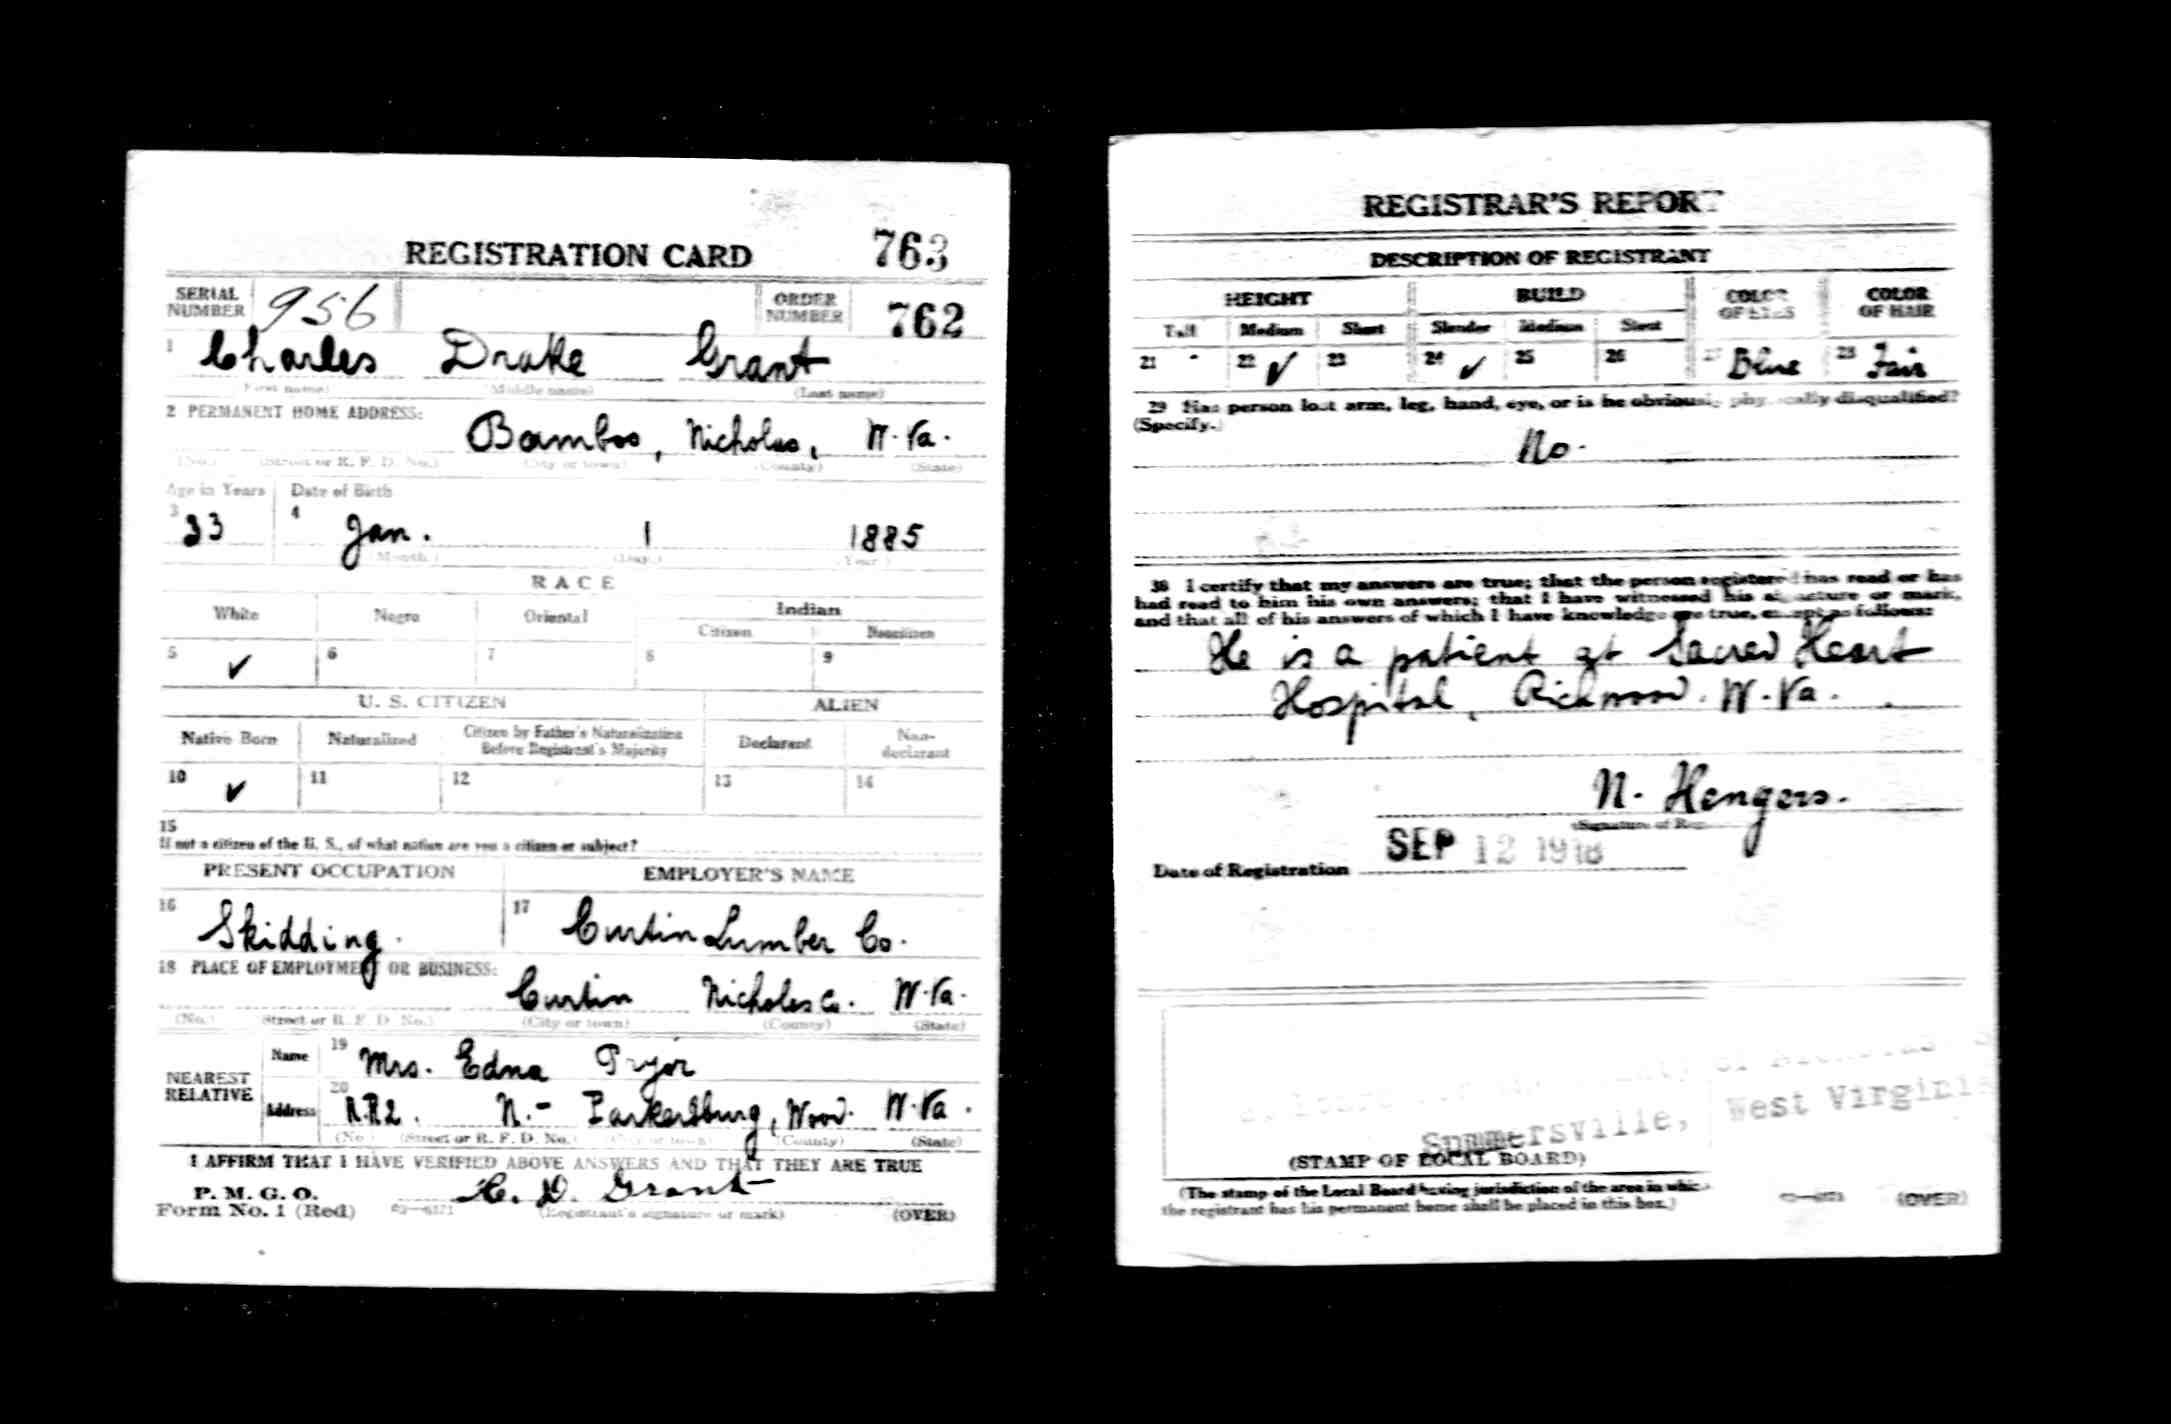 REGISTRATION CARD 763
SERIAL NUMBER 956 ORDER NUMBER 762
1 Charles Drake Grant
(First name) (Middle name) (Last name)
2 PERMANENT HOME ADDRESS:
Bamboo, Nicholas, W. Va.
(No.) (Street or R. F. D. No.) (City or town) (County) (State)
Age in Years Date of Birth
3 33 4 Jan. 1 1885
(Month.) (Day.) (Year.)
RACE
White Negro Oriental Indian
Citizen Noncitizen
5 ✓ 6 7 8 9
U. S. CITIZEN ALIEN
Native Born Naturalized Citizen by Father's Naturalization Before Registrant's Majority Declarant Non-declarant
10 ✓ 11 12 13 14
15
If not a citizen of the U. S., of what nation are you a citizen or subject?
PRESENT OCCUPATION EMPLOYER'S NAME
16 Skidding. 17 Curtin Lumber Co.
18 PLACE OF EMPLOYMENT OR BUSINESS:
Curtin Nicholas Co. W. Va.
(No.) (Street or R. F. D. No.) (City or town) (County) (State)
NEAREST RELATIVE
Name 19 Mrs. Edna Pryor
Address 20 R.R.2. N.- Parkersburg, Wood. W. Va.
(No.) (Street or R. F. D. No.) (City or town) (County) (State)
I AFFIRM THAT I HAVE VERIFIED ABOVE ANSWERS AND THAT THEY ARE TRUE
P. M. G. O.
Form No. 1 (Red) C. D. Grant
(Registrant's signature or mark) (OVER)
REGISTRAR'S REPORT
DESCRIPTION OF REGISTRANT
HEIGHT BUILD COLOR OF EYES COLOR OF HAIR
Tall Medium Short Slender Medium Stout
21 22 ✓ 23 24 ✓ 25 26 27 Blue 28 Fair
29 Has person lost arm, leg, hand, eye, or is he obviously physically disqualified?
(Specify.)
No.
30 I certify that my answers are true; that the person registered has read or has
had read to him his own answers; that I have witnessed his signature or mark,
and that all of his answers of which I have knowledge are true, except as follows:
He is a patient at Sacred Heart
Hospital, Richwood. W. Va.
N. Hengers.
(Signature of Reg
Date of Registration SEP 12 1918
of Nicholas
Summersville, West Virginia
(STAMP OF LOCAL BOARD)
(The stamp of the Local Board having jurisdiction of the area in which
the registrant has his permanent home shall be placed in this box.) (OVER)